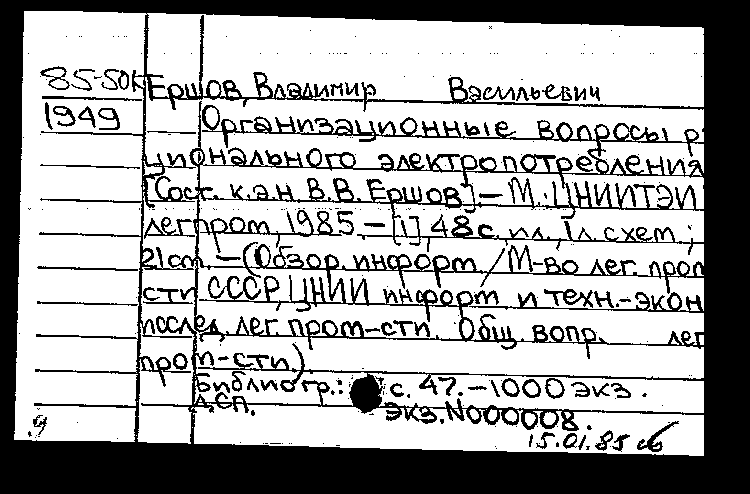 85-50к Ершов, Владимир Васильевич
1949 Организационные вопросы ра
ционального электропотребления
[Сост. к.э.н. В.В. Ершов]. – М.: ЦНИИТЭИ
легпром, 1985. – [1], 48 с. ил., 1 л. схем.;
21 cm. – (Обзор. информ. / М-во лег. пром
сти СССР, ЦНИИ информ. и техн.-экон
послед. лег. пром-сти. Общ. вопр. лег
пром-сти).
Библиогр.: с. 47. – 1000 экз.
ДСП. Экз. N000008.
15.01.85